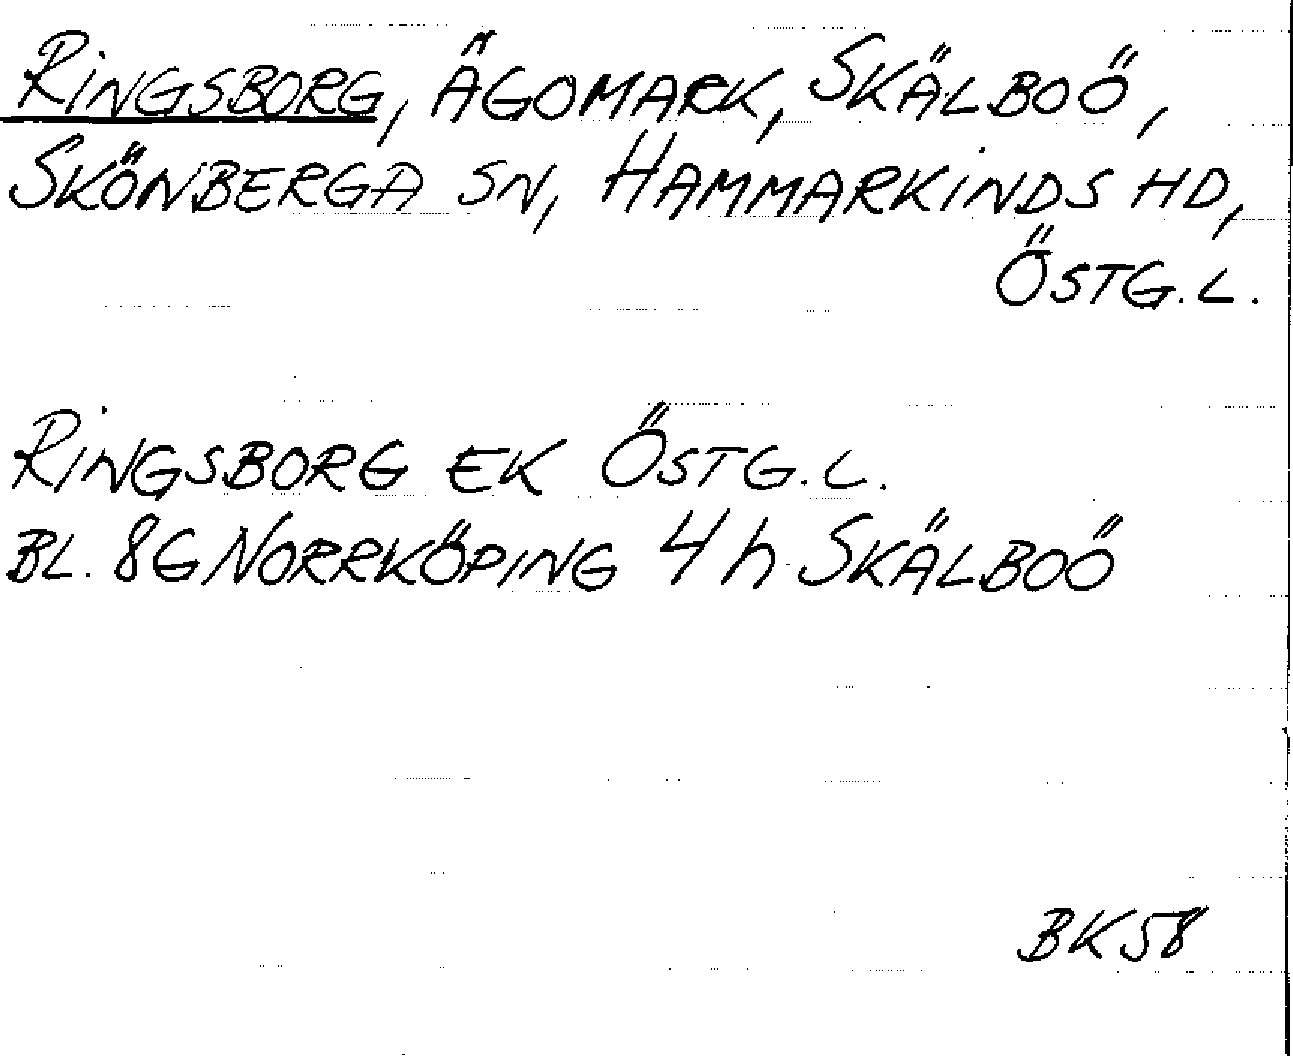 RINGSBORG, ÄGOMARK, SKÄLBOÖ,
SKÖNBERGA SN, HAMMARKINDS HD,
ÖSTG.L.
RINGSBORG EK ÖSTG.L.
BL. 8G NORRKÖPING 4h SKÄLBOÖ
BK58